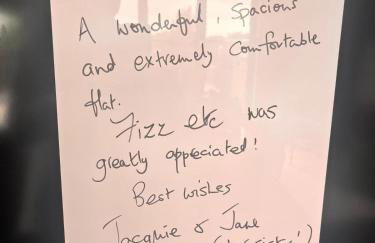 A wonderful, spacious
and extremely comfortable
flat.
Fizz etc was
greatly appreciated!
Best wishes
Jacquie & Jane